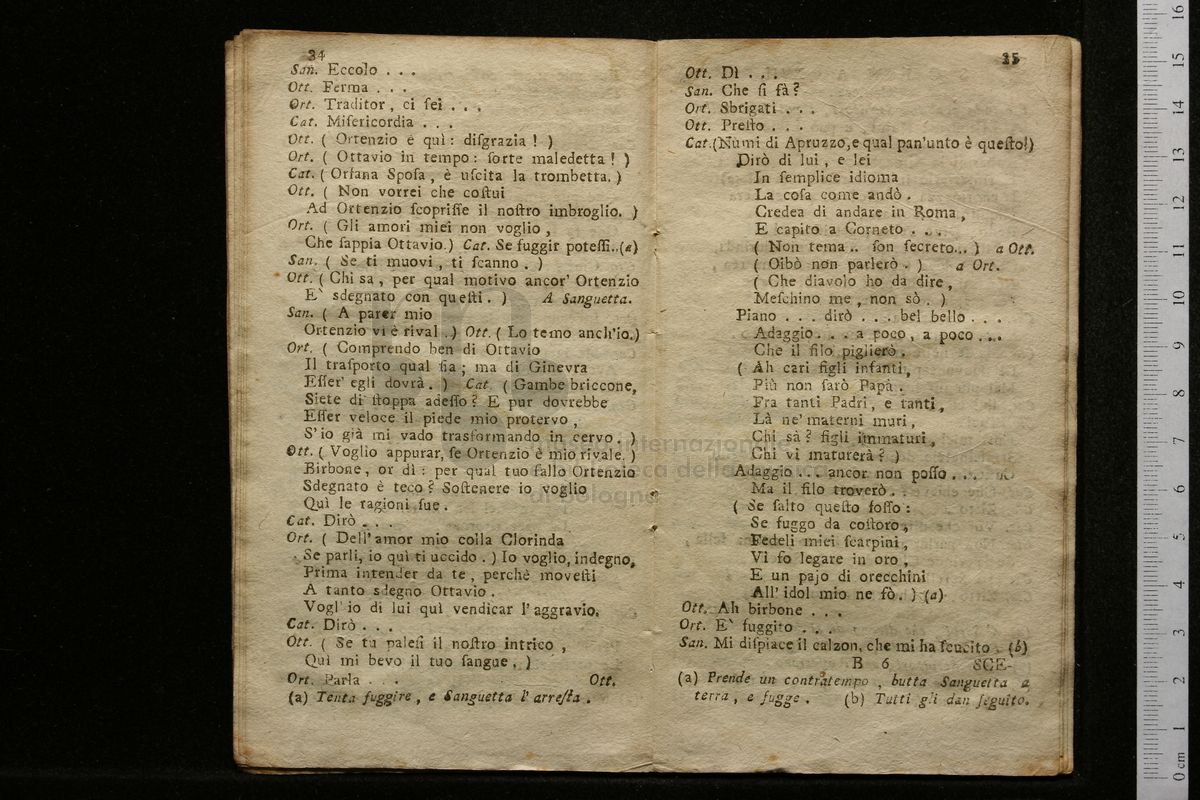 34
San. Eccolo . . .
Ott. Ferma . . .
Ort. Traditor, ci ſei . . .
Cat. Miſericordia . . .
Ott. ( Ortenzio è quì: diſgrazia ! )
Ort. ( Ottavio in tempo: ſorte maledetta ! )
Cat. ( Orſana Spoſa, è uſcita la trombetta. )
Ott. ( Non vorrei che coſtui
Ad Ortenzio ſcopriſſe il noſtro imbroglio. )
Ort. ( Gli amori miei non voglio,
Che ſappia Ottavio.) Cat. Se fuggir poteſſi..(a)
San. ( Se ti muovi, ti ſcanno . )
Ott. ( Chi sa, per qual motivo ancor' Ortenzio
E` sdegnato con queſti. ) A Sanguetta.
San. ( A parer mio
Ortenzio vi è rival .) Ott. ( Lo temo anch'io.)
Ort. ( Comprendo ben di Ottavio
Il traſporto qual ſia; ma di Ginevra
Eſſer' egli dovrà. ) Cat. ( Gambe briccone,
Siete di ſtoppa adeſſo? E pur dovrebbe
Eſſer veloce il piede mio protervo,
S'io già mi vado trasformando in cervo. )
Ott. ( Voglio appurar, ſe Ortenzio è mio rivale. )
Birbone, or dì: per qual tuo fallo Ortenzio
Sdegnato è teco? Soſtenere io voglio
Quì le ragioni ſue.
Cat. Dirò . . .
Ort. ( Dell'amor mio colla Clorinda
Se parli, io quì ti uccido . ) Io voglio, indegno,
Prima intender da te, perchè moveſti
A tanto sdegno Ottavio.
Vogl' io di lui quì vendicar l'aggravio.
Cat. Dirò . . .
Ott. ( Se tu paleſi il noſtro intrico,
Quì mi bevo il tuo ſangue. )
Ort. Parla . . . Ott.
(a) Tenta fuggire, e Sanguetta l'arreſta .
35
Ott. Dì . . .
San. Che ſi fà?
Ort. Sbrigati . . .
Ott. Preſto . . .
Cat.(Numi di Apruzzo,e qual pan'unto è queſto!)
Dirò di lui, e lei
In ſemplice idioma
La coſa come andò .
Credea di andare in Roma,
E capitò a Corneto . . . .
( Non tema .. ſon ſecreto... ) a Ott.
( Oibò non parlerò . ) a Ort.
( Che diavolo ho da dire,
Meſchino me, non sò. )
Piano . . . dirò . . . bel bello . . .
Adaggio . . . a poco, a poco . . .
Che il filo piglierò .
( Ah cari figli infanti,
Più non ſarò Papà.
Fra tanti Padri, e tanti,
Là ne' materni muri,
Chi sà? figli immaturi,
Chi vi maturerà? )
Adaggio . . . ancor non poſſo . . .
Ma il filo troverò .
( Se ſalto queſto foſſo :
Se fuggo da coſtoro,
Fedeli miei ſcarpini,
Vi fo legare in oro,
E un pajo di orecchini
All' idol mio ne fò. ) (a)
Ott. Ah birbone . . .
Ort. E` fuggito . . .
San. Mi diſpiace il calzon, che mi ha ſcucito . (b)
B 6 SCE-
(a) Prende un contratempo, butta Sanguetta a
terra, e fugge. (b) Tutti gli dan ſeguito.